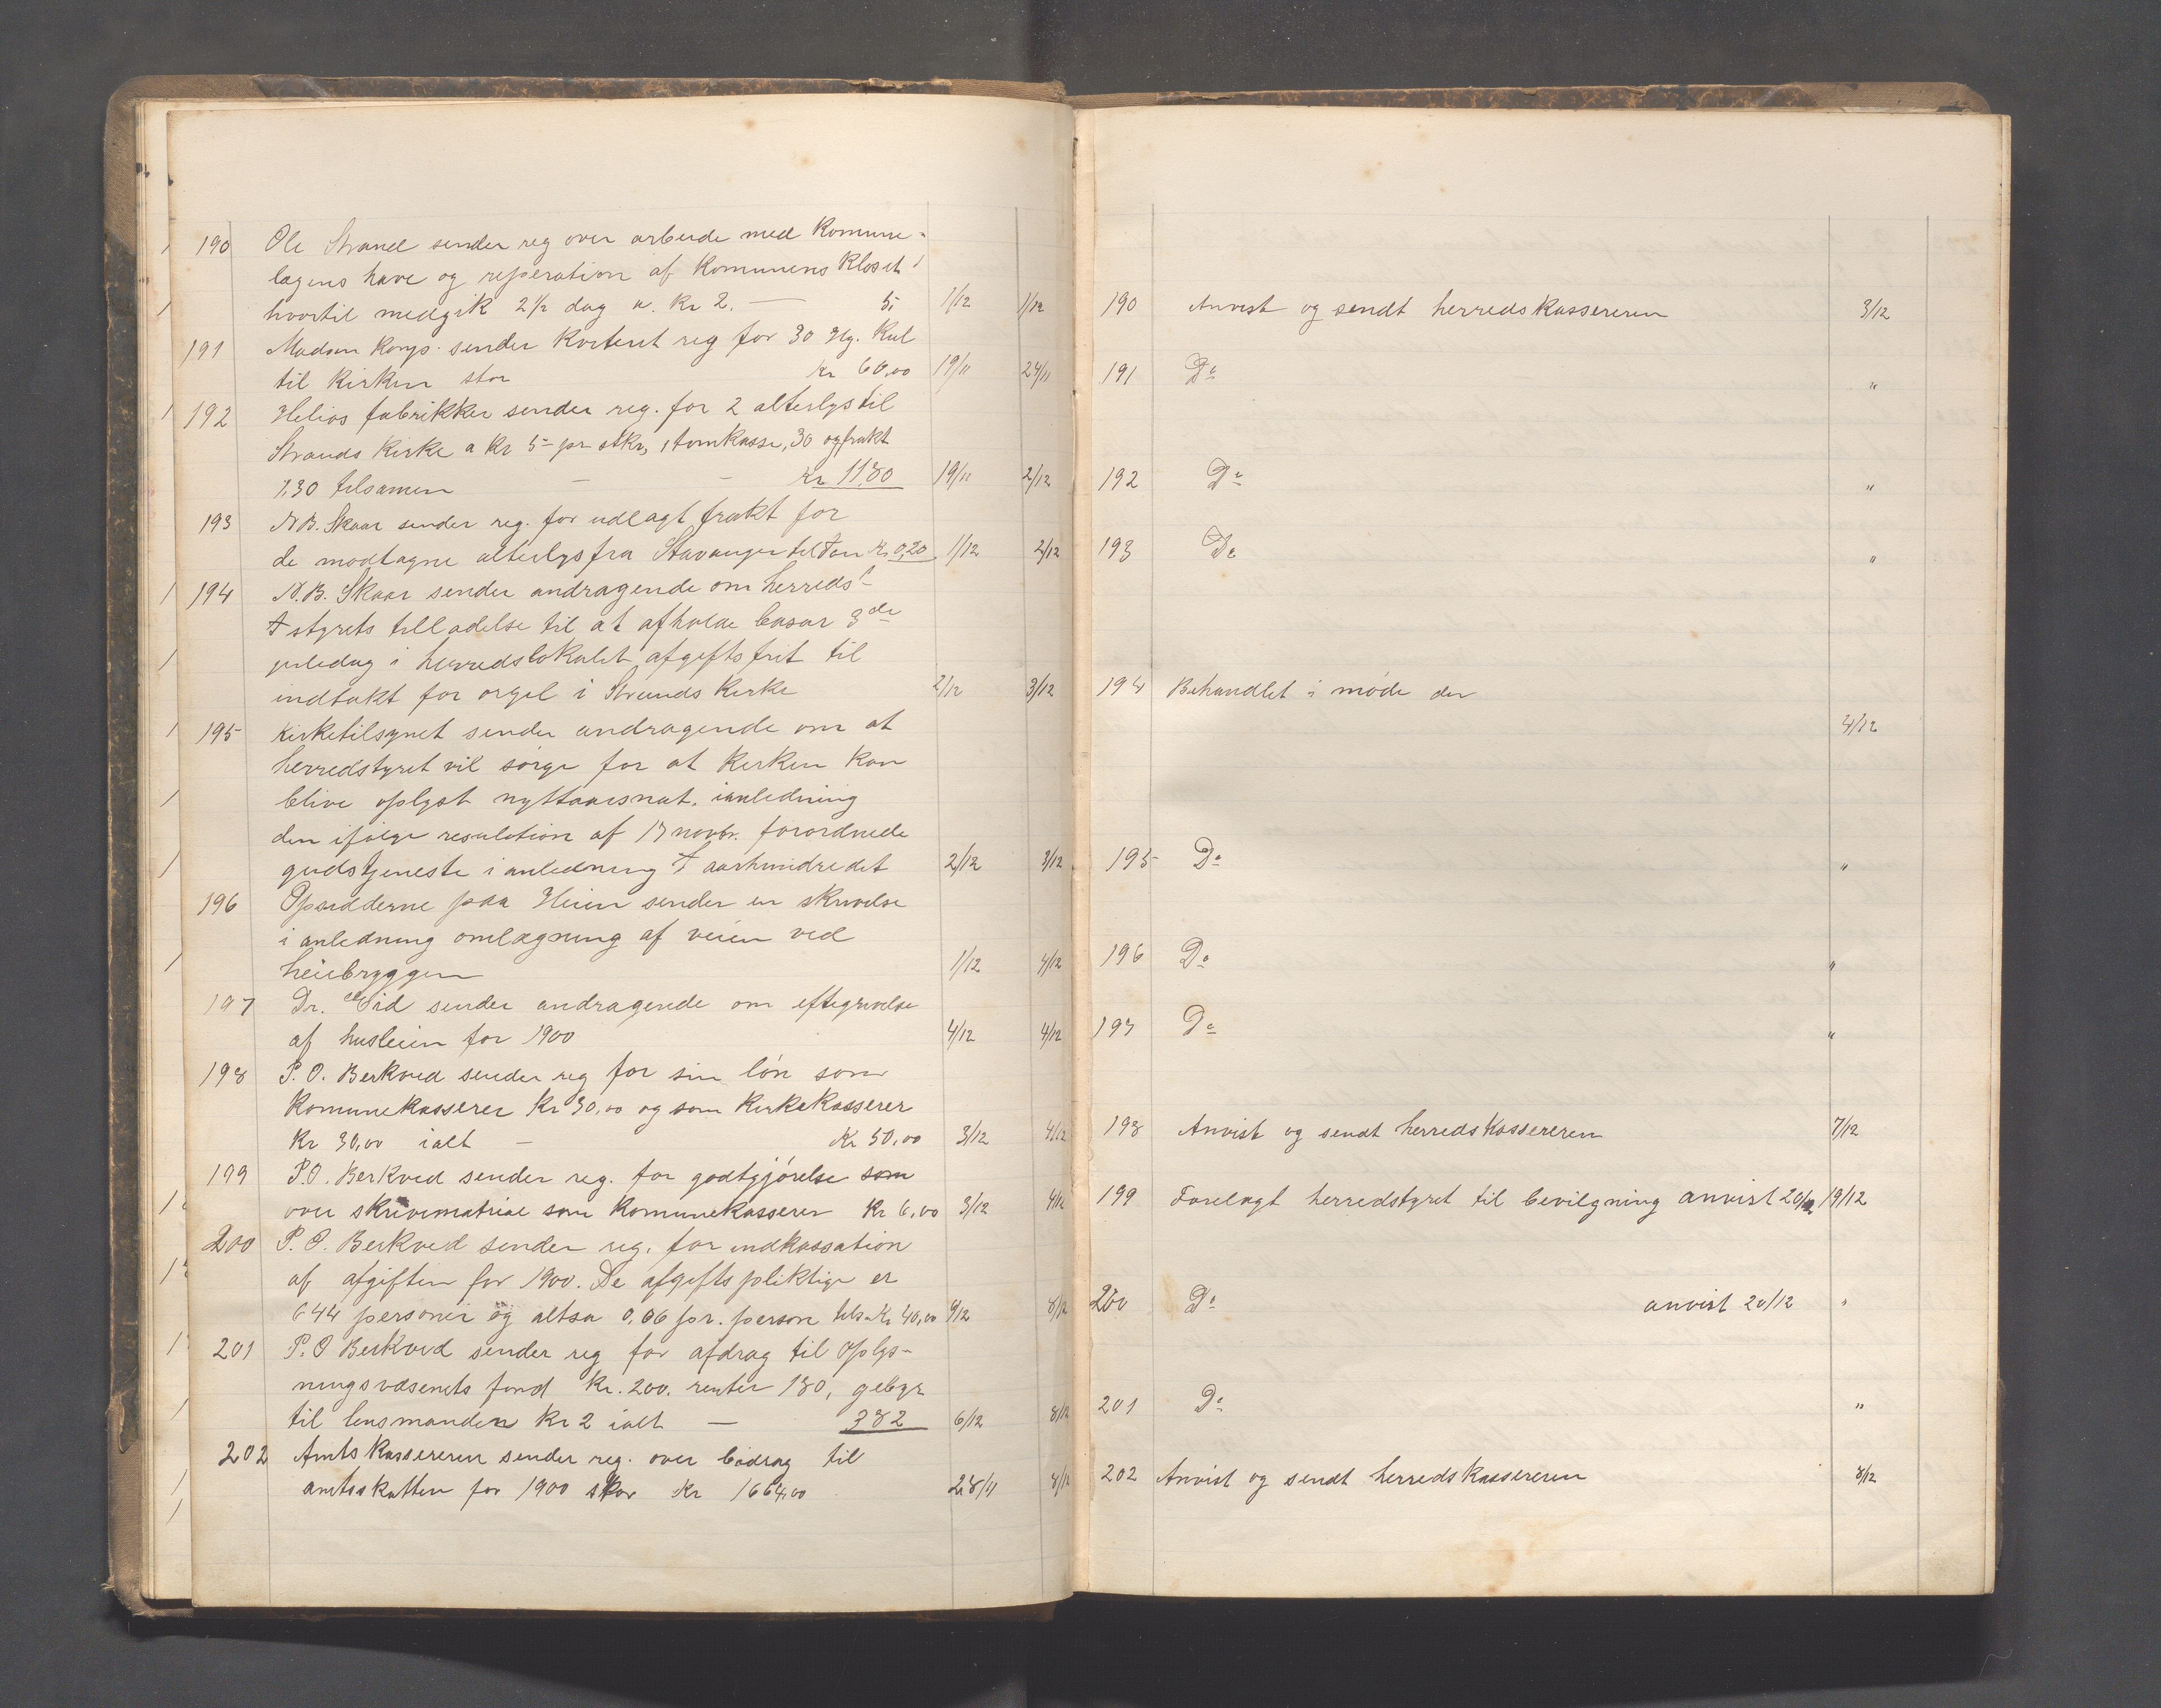 190 Ole Strand sender reg over arbeide med Komune-
lægens have og reperation af Komunens Kloset
hvortil medgik 2½ dag a. Kr 2. — 5, 1/12 1/12
191 Madsen Kongs. sender Kvitert reg for 30 Hg. Kul
til Kirken stor Kr 60,00 19/11 24/11
192 Helios fabrikker sender reg. for 2 alterlys til
Strands Kirke a Kr 5- pr stkr, 1 tomkasse, 30 og frakt
1,30 tilsamen — - Kr 11,80 19/11 2/12
193 N.B. Skaar sender reg. for udlagt frakt for
de modtagne alterlys fra Stavanger til Tau Kr 0,20 1/12 2/12
194 N.B. Skaar sender andragende om herreds-
styrets tilladelse til at afholde basar 3de
juledag i herredslokalet afgiftsfrit til
indtækt for orgel i Strands Kirke 2/12 3/12
195 Kirketilsynet sender andragende om at
herredstyret vil sørge for at Kirken Kan
blive oplyst nyttaarsnat, ianledning
den ifølge resulotion af 17 novbr. forordnede
gudstjeneste i anledning aarhundredet 2/12 3/12
196 Opsidderne paa Heien sender en skrivelse
i anledning omlægning af veien ved
heiebryggen 1/12 4/12
197 Dr. Eid sender andragende om eftegivelse
af husleien for 1900 4/12 4/12
198 P. O. Berkved sender reg for sin løn som
Komunekasserer Kr 30,00 og som Kirkekasserer
Kr 30,00 ialt — Kr 50,00 3/12 4/12
199 P.O. Berkved sender reg. for godtgjørelse som
over skrivematriae som Komunekasserer Kr 6,00 3/12 4/12
200 P. O. Berkved sender reg. for indkassation
af afgiften for 1900. De afgiftspliktige er
644 personer og altsa 0,06 pr. person tils. Kr 40,00 4/12 8/12
201 P. O Berkved sender reg for afdrag til Oplys-
ningsvæsenets fond Kr. 200. renter 180, gebyr
til lensmanden Kr 2 ialt — 382 6/12 8/12
202 Amtskassereren sender reg. over bidrag til
amtsskatten for 1900 stor Kr 1664,00 28/11 8/12
190 Anvist og sendt herredskassereren 3/12
191 Do "
192 Do "
193 Do "
194 Behandlet i møde den
4/12
195 Do "
196 Do "
197 Do "
198 Anvist og sendt herredskassereren 7/12
199 Forelagt herredstyret til bevilgning anvist 20/12 19/12
200 Do anvist 20/12 "
201 Do "
202 Anvist og sendt herredskassereren 8/12